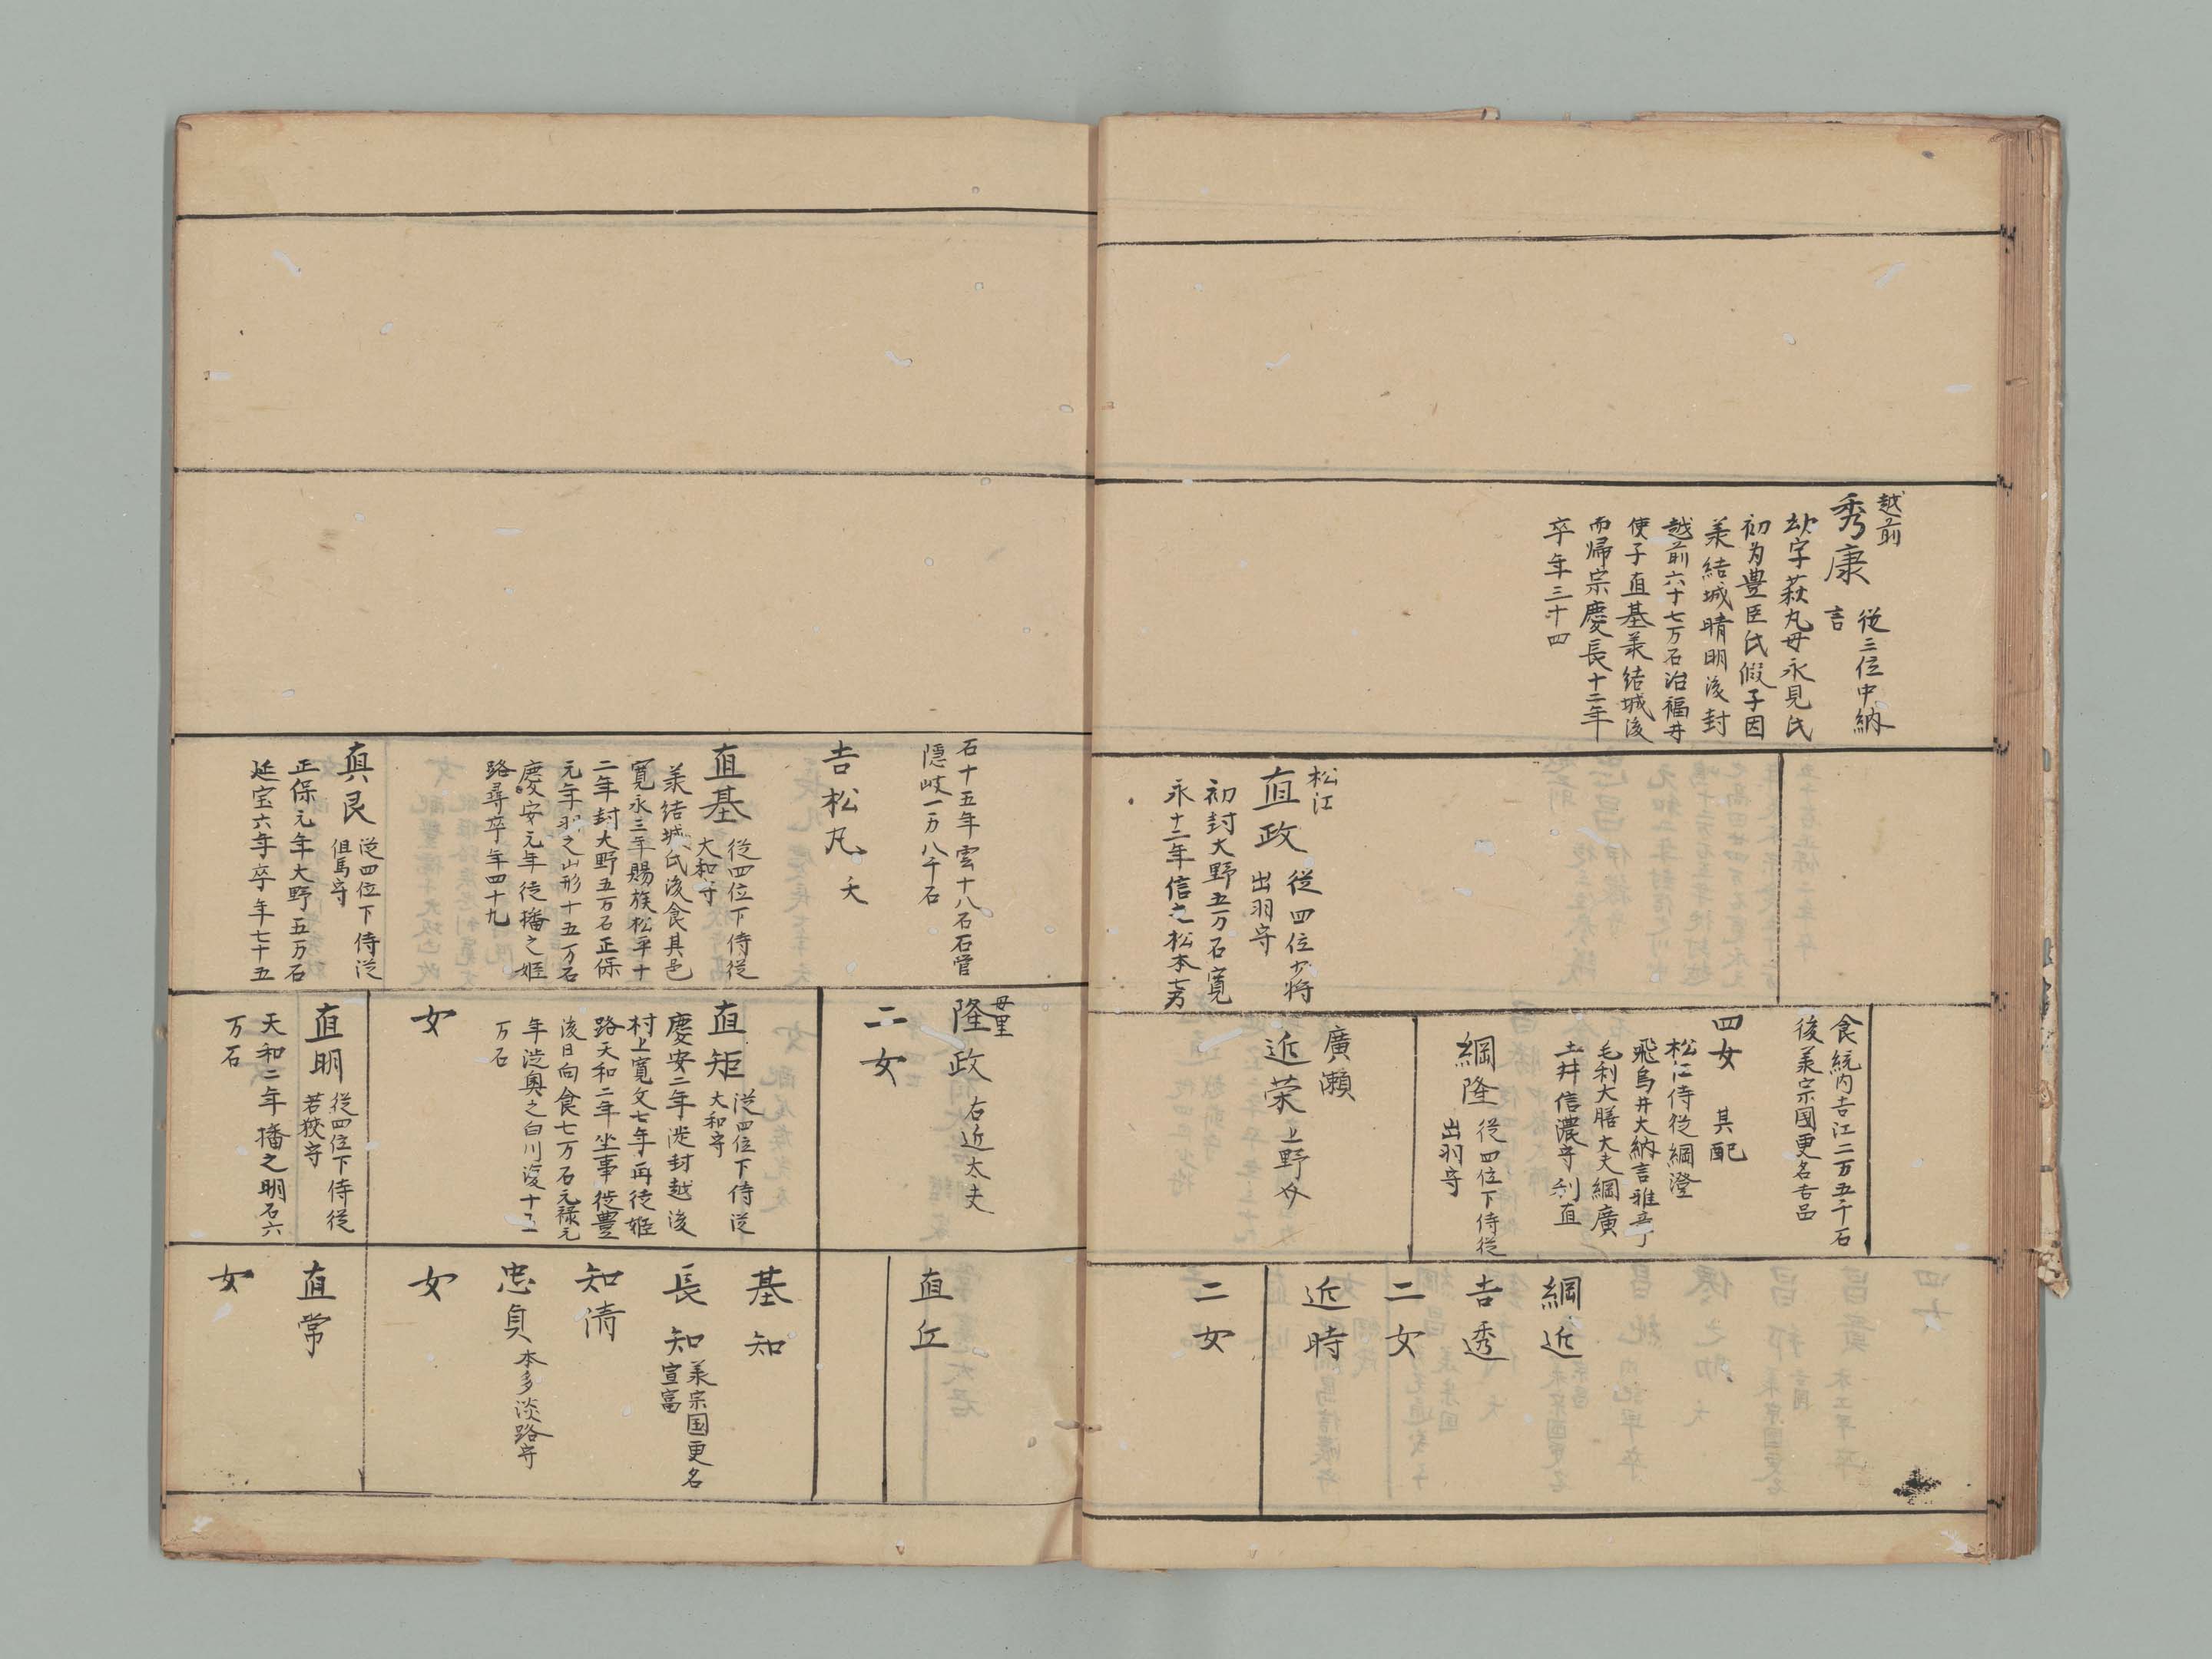 越前
秀康
從三位中納
言
幼字萩丸母永見氏
初为豊臣氏假子因
養結城晴明後封
越前六十七万石治福井
使子直基養結城後
而帰宗慶長十二年
卒年三十四
松江
直政
從四位少将
出羽守
初封大野五万石寛
永十二年信之松本七万
食統内吉江二万五千石
後養宗國更名吉品
四女 其配
松江侍從綱澄
飛鳥井大納言雅
毛利大膳大夫綱廣
土井信濃守利直
綱隆
從四位下侍從
出羽守
廣瀬
近荣
上野介
綱近
吉透
二女
近時
二女
石十五年雲十八石石管
隠岐一万八千石
吉松丸 夭
直基
從四位下侍從
大和守
養結城氏後食其邑
寛永三年賜族松平十
二年封大野五万石正保
元年羽之山形十五万石
慶安元年徙播之姫
路尋卒年四十九
直良
從四位下侍從
但馬守
正保元年大野五万石
延宝六年卒年七十五
母里
隆政
右近太夫
二女
直矩
從四位下侍從
大和守
慶安二年徙封越後
村上寛文七年再徙姫
路天和二年坐事徙豊
後日向食七万石元禄元
年徙奥之白川後十五
万石
女
直明
從四位下侍從
若狹守
天和二年播之明石六
万石
直丘
基知
長知
養宗国更名
宣富
知清
忠貞
本多淡路守
女
直常
女